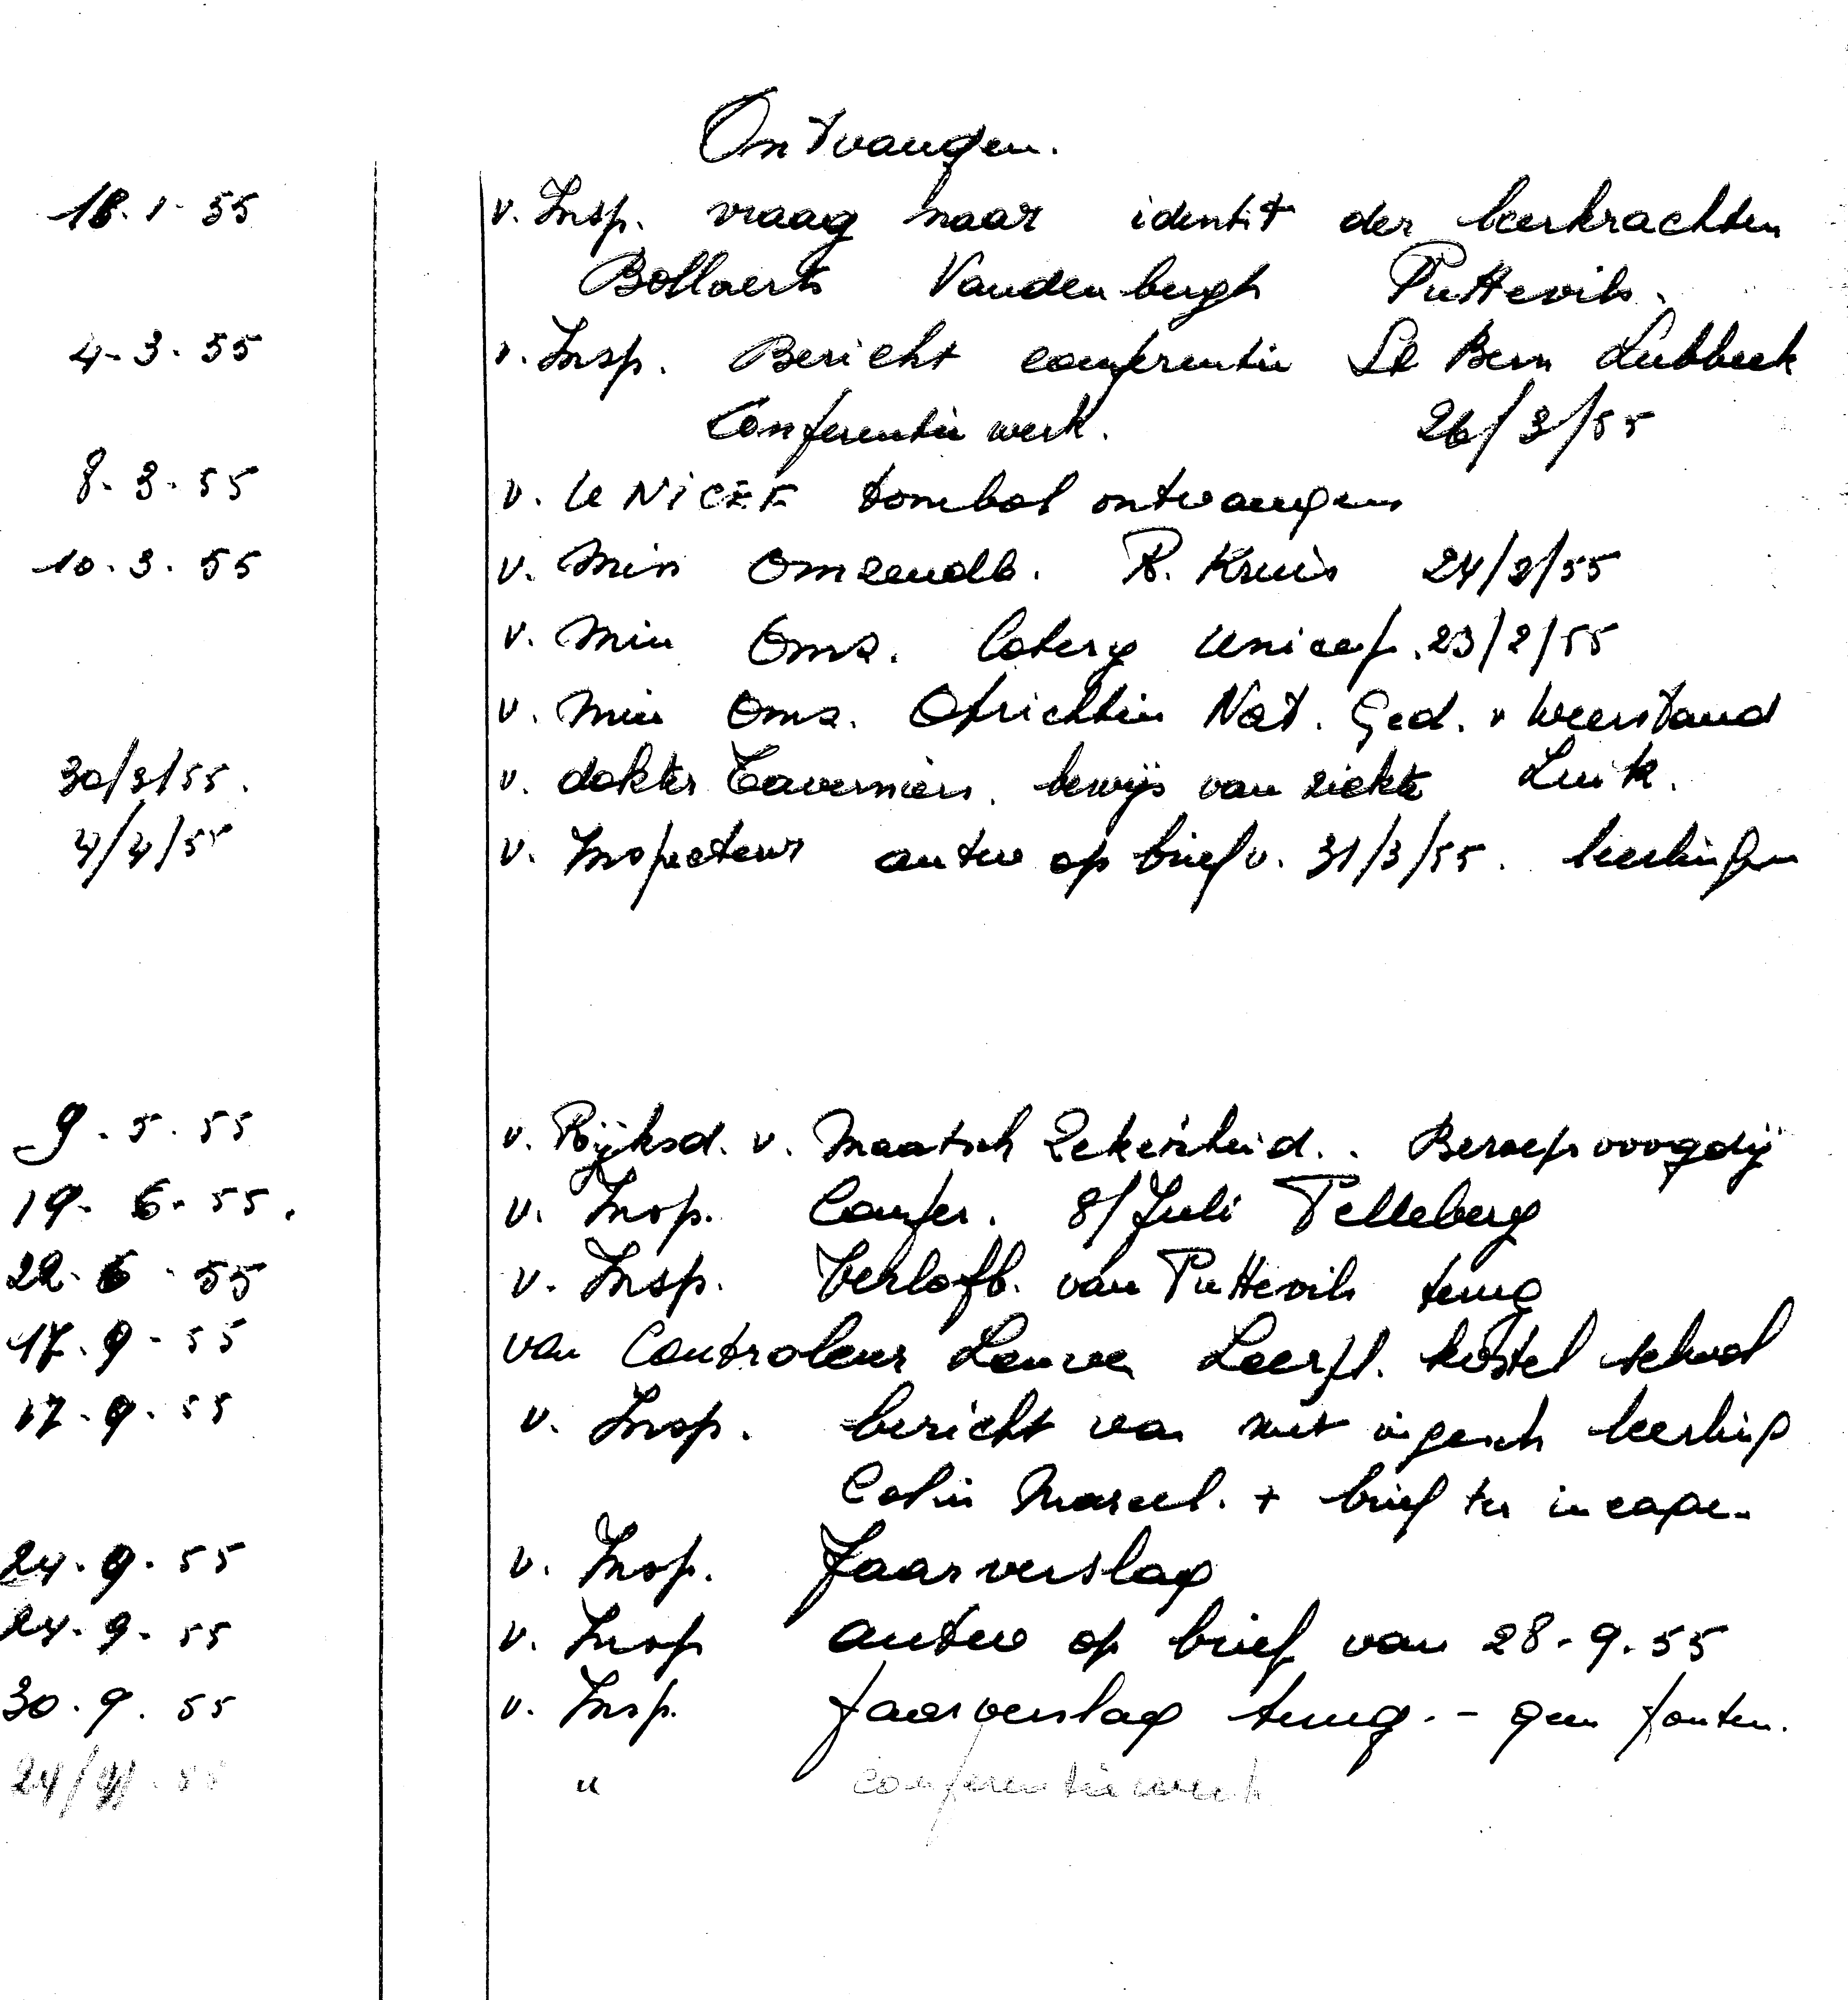 Ontvangen.
18-1-55 v. Insp. vraag naar identit der leerkrachten
Bollaerts Vandenbergh Puttevils.
4-3-55 v. Insp. Bericht conferentie St Bern Lubbeek
Conferentie werk. 26/3/55
8-3-55 v. UNICEF tombol ontvangen
10.3.55 v. Min Omzendb. R. Kruis 24/2/55
v. Min Omz. lotery Unicef. 23/2/55
v. Min Omz. Oprichtin Nat. Ged. v Weerstand
30/3/55. v. dokter Taverniers. bewijs van ziekte Luik.
4/4/55 v. Inspecteur antw op brief v. 31/3/55. leerlingen
9-5-55 v. Rijksd. v. Maatsch Zekerheid.. Beroepsvoogdij
19-6-55. v. Insp. Confer. 8/Juli Pelleberg
22-6-55 v. Insp. Verlofb. van Puttevils terug
17.9-55 van Controleur Leuven Leerpl. kostel school
17-9-55 v. Insp. bericht van niet ingesch leerling
Colin Marcel. + brief ter incape.
24-9-55 v. Insp. Jaarverslag
24-9-55 v. Insp antw op brief van 28-9-55
30.9.55 v. Insp. Jaarverslag terug. - geen fouten.
" conferentiewerk